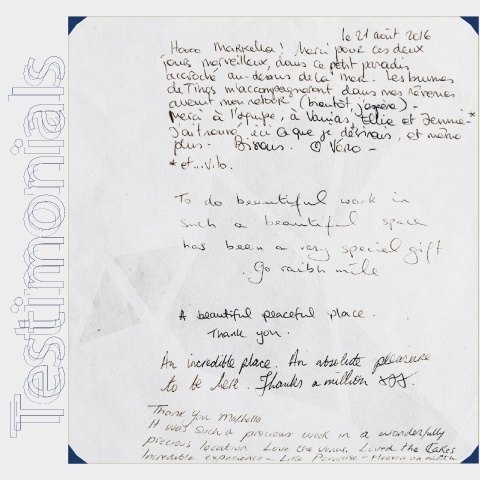 Testimonials
le 21 août 2016
Merci pour ces deux
jours merveilleux, dans ce petit paradis
accroché au-dessus de la mer. Les brumes
de Tinos m'accompagneront dans mes rêveries
avant mon retour (bientôt, j'espère) -
Merci à l'équipe, à Ellie et Jennie *
J'ai trouvé ici ce que je désirais, et même
plus. Bisous. Véro -
* et...
To do beautiful work in
such a beautiful space
has been a very special gift
. Go raibh míle
A beautiful peaceful place.
Thank you.
An incredible place. An absolute pleasure
to be here. Thanks a million xxx.
Thank you
It was such a precious week in a wonderfully
precious location. Love the venue. Loved the Cakes
Incredible experience - Like Paradise - Heaven on earth